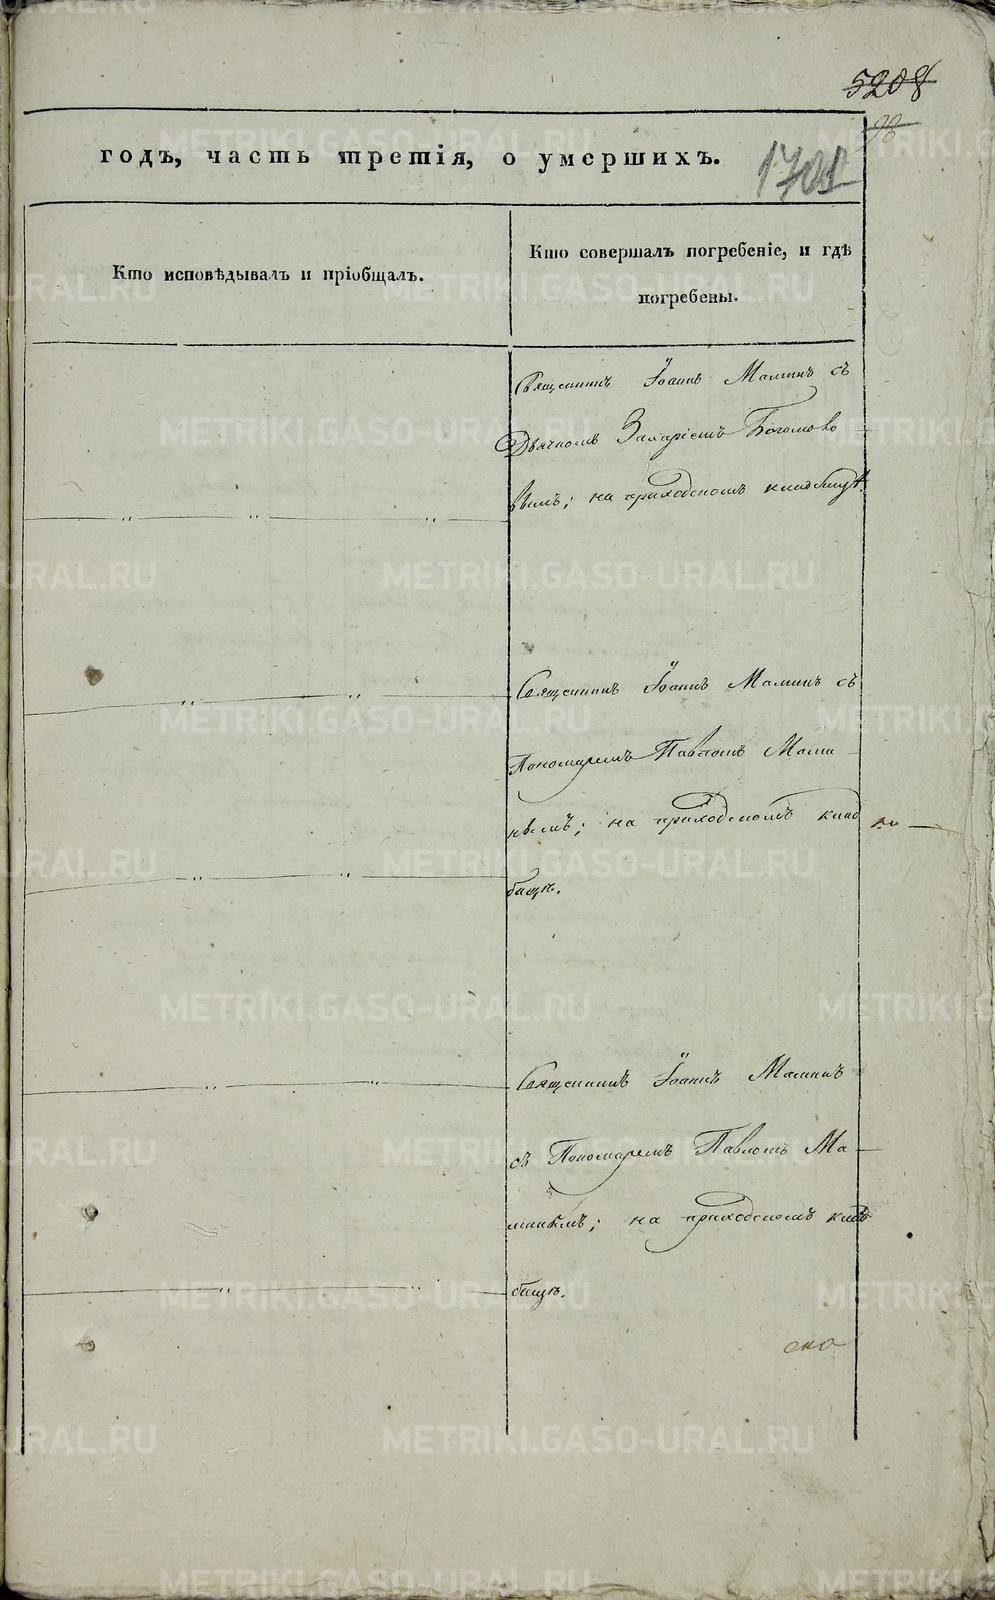 5208
98
годъ, часть третія, о умершихъ.
1701
Кто исповѣдывалъ и пріобщалъ.
Кто совершалъ погребеніе, и гдѣ
погребены.
Священникъ Іоаннъ Маминъ съ
Дьячкомъ Захаріемъ Богомоло
вымъ; на приходскомъ кладбищѣ.
Священникъ Іоаннъ Маминъ съ
Пономаремъ Павломъ Мами
нымъ; на приходскомъ клад
бищѣ.
Священникъ Іоаннъ Маминъ
съ Пономаремъ Павломъ Ма-
минымъ; на приходскомъ клад
бищѣ.
ско
METRIKI.GASO-URAL.RU